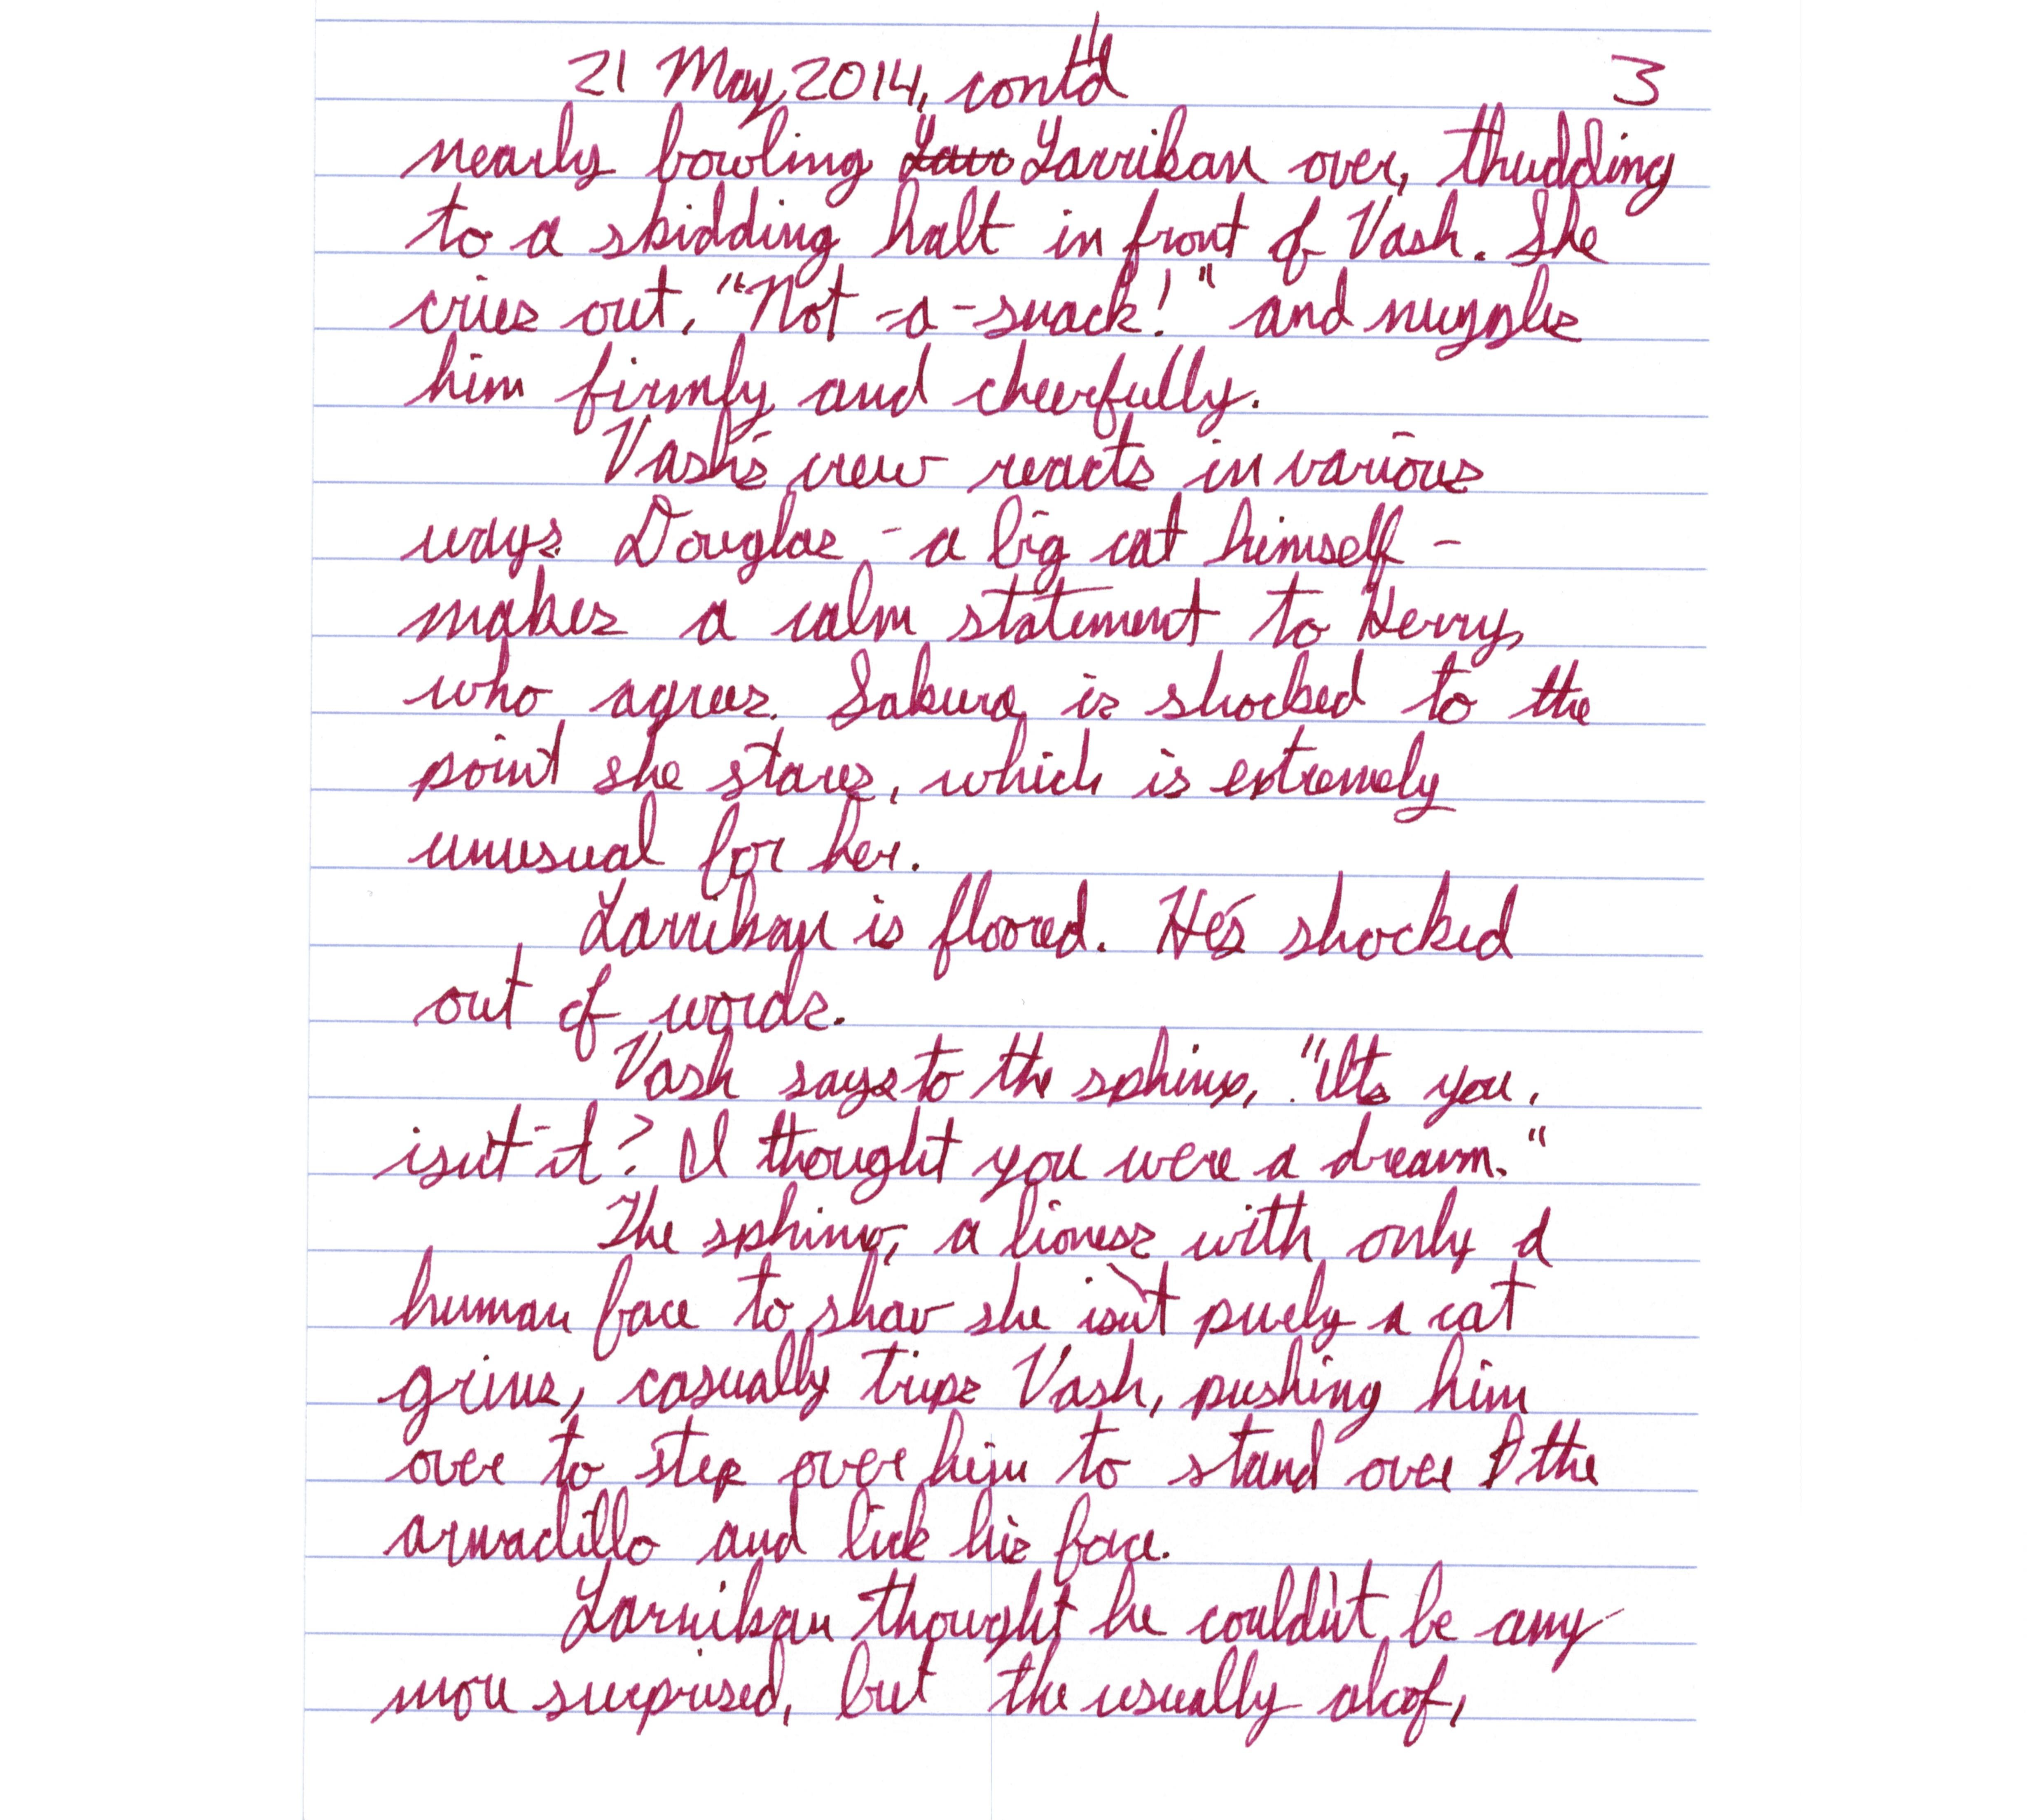 21 May 2014, cont'd 3
nearly bowling Larrikan over, thudding
to a skidding halt in front of Vash. She
cries out, "Not-a-snack!" and nuzzles
him firmly and cheerfully.
Vash's crew reacts in various
ways. Douglas - a big cat himself -
makes a calm statement to Kerry,
who agrees. Sakura is shocked to the
point she stares, which is extremely
unusual for her.
Larrikan is floored. He's shocked
out of words.
Vash says to the sphinx, "It's you,
isn't it? I thought you were a dream."
The sphinx, a lioness with only a
human face to show she isn't purely a cat
grins, casually trips Vash, pushing him
over to step over him to stand over the
armadillo and lick his face.
Larrikan thought he couldn't be any
more surprised, but the usually aloof,